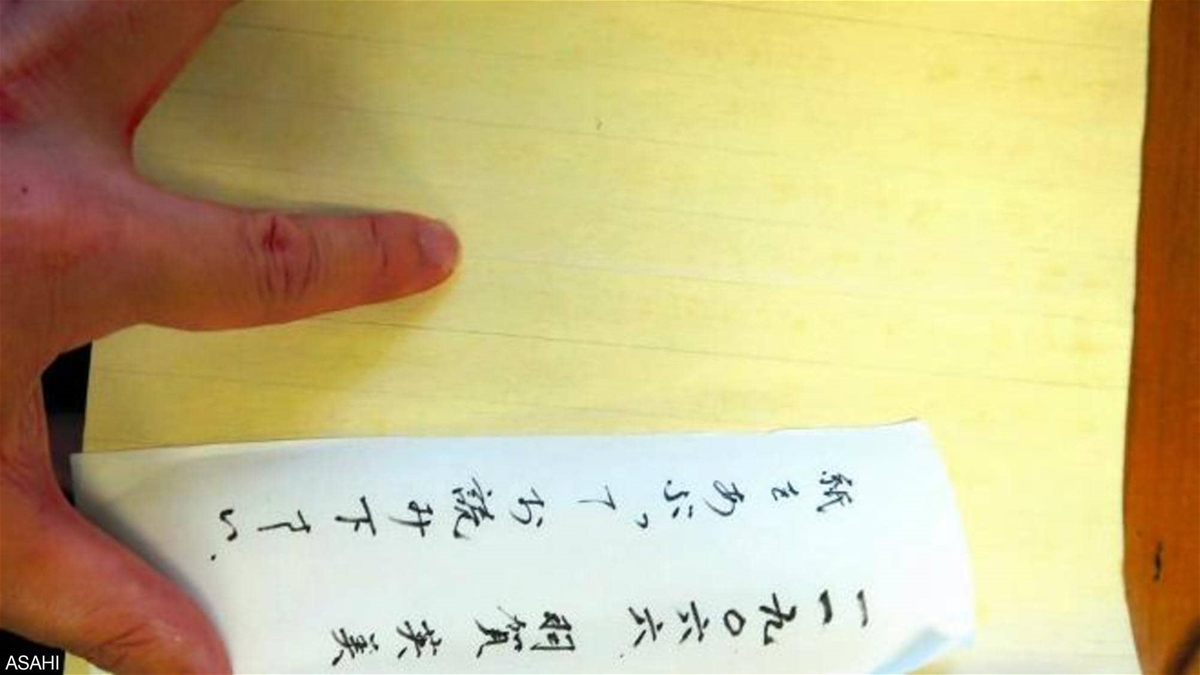 一一九〇六六 羽賀英美
紙をあぶってお読み下さい。
ASAHI